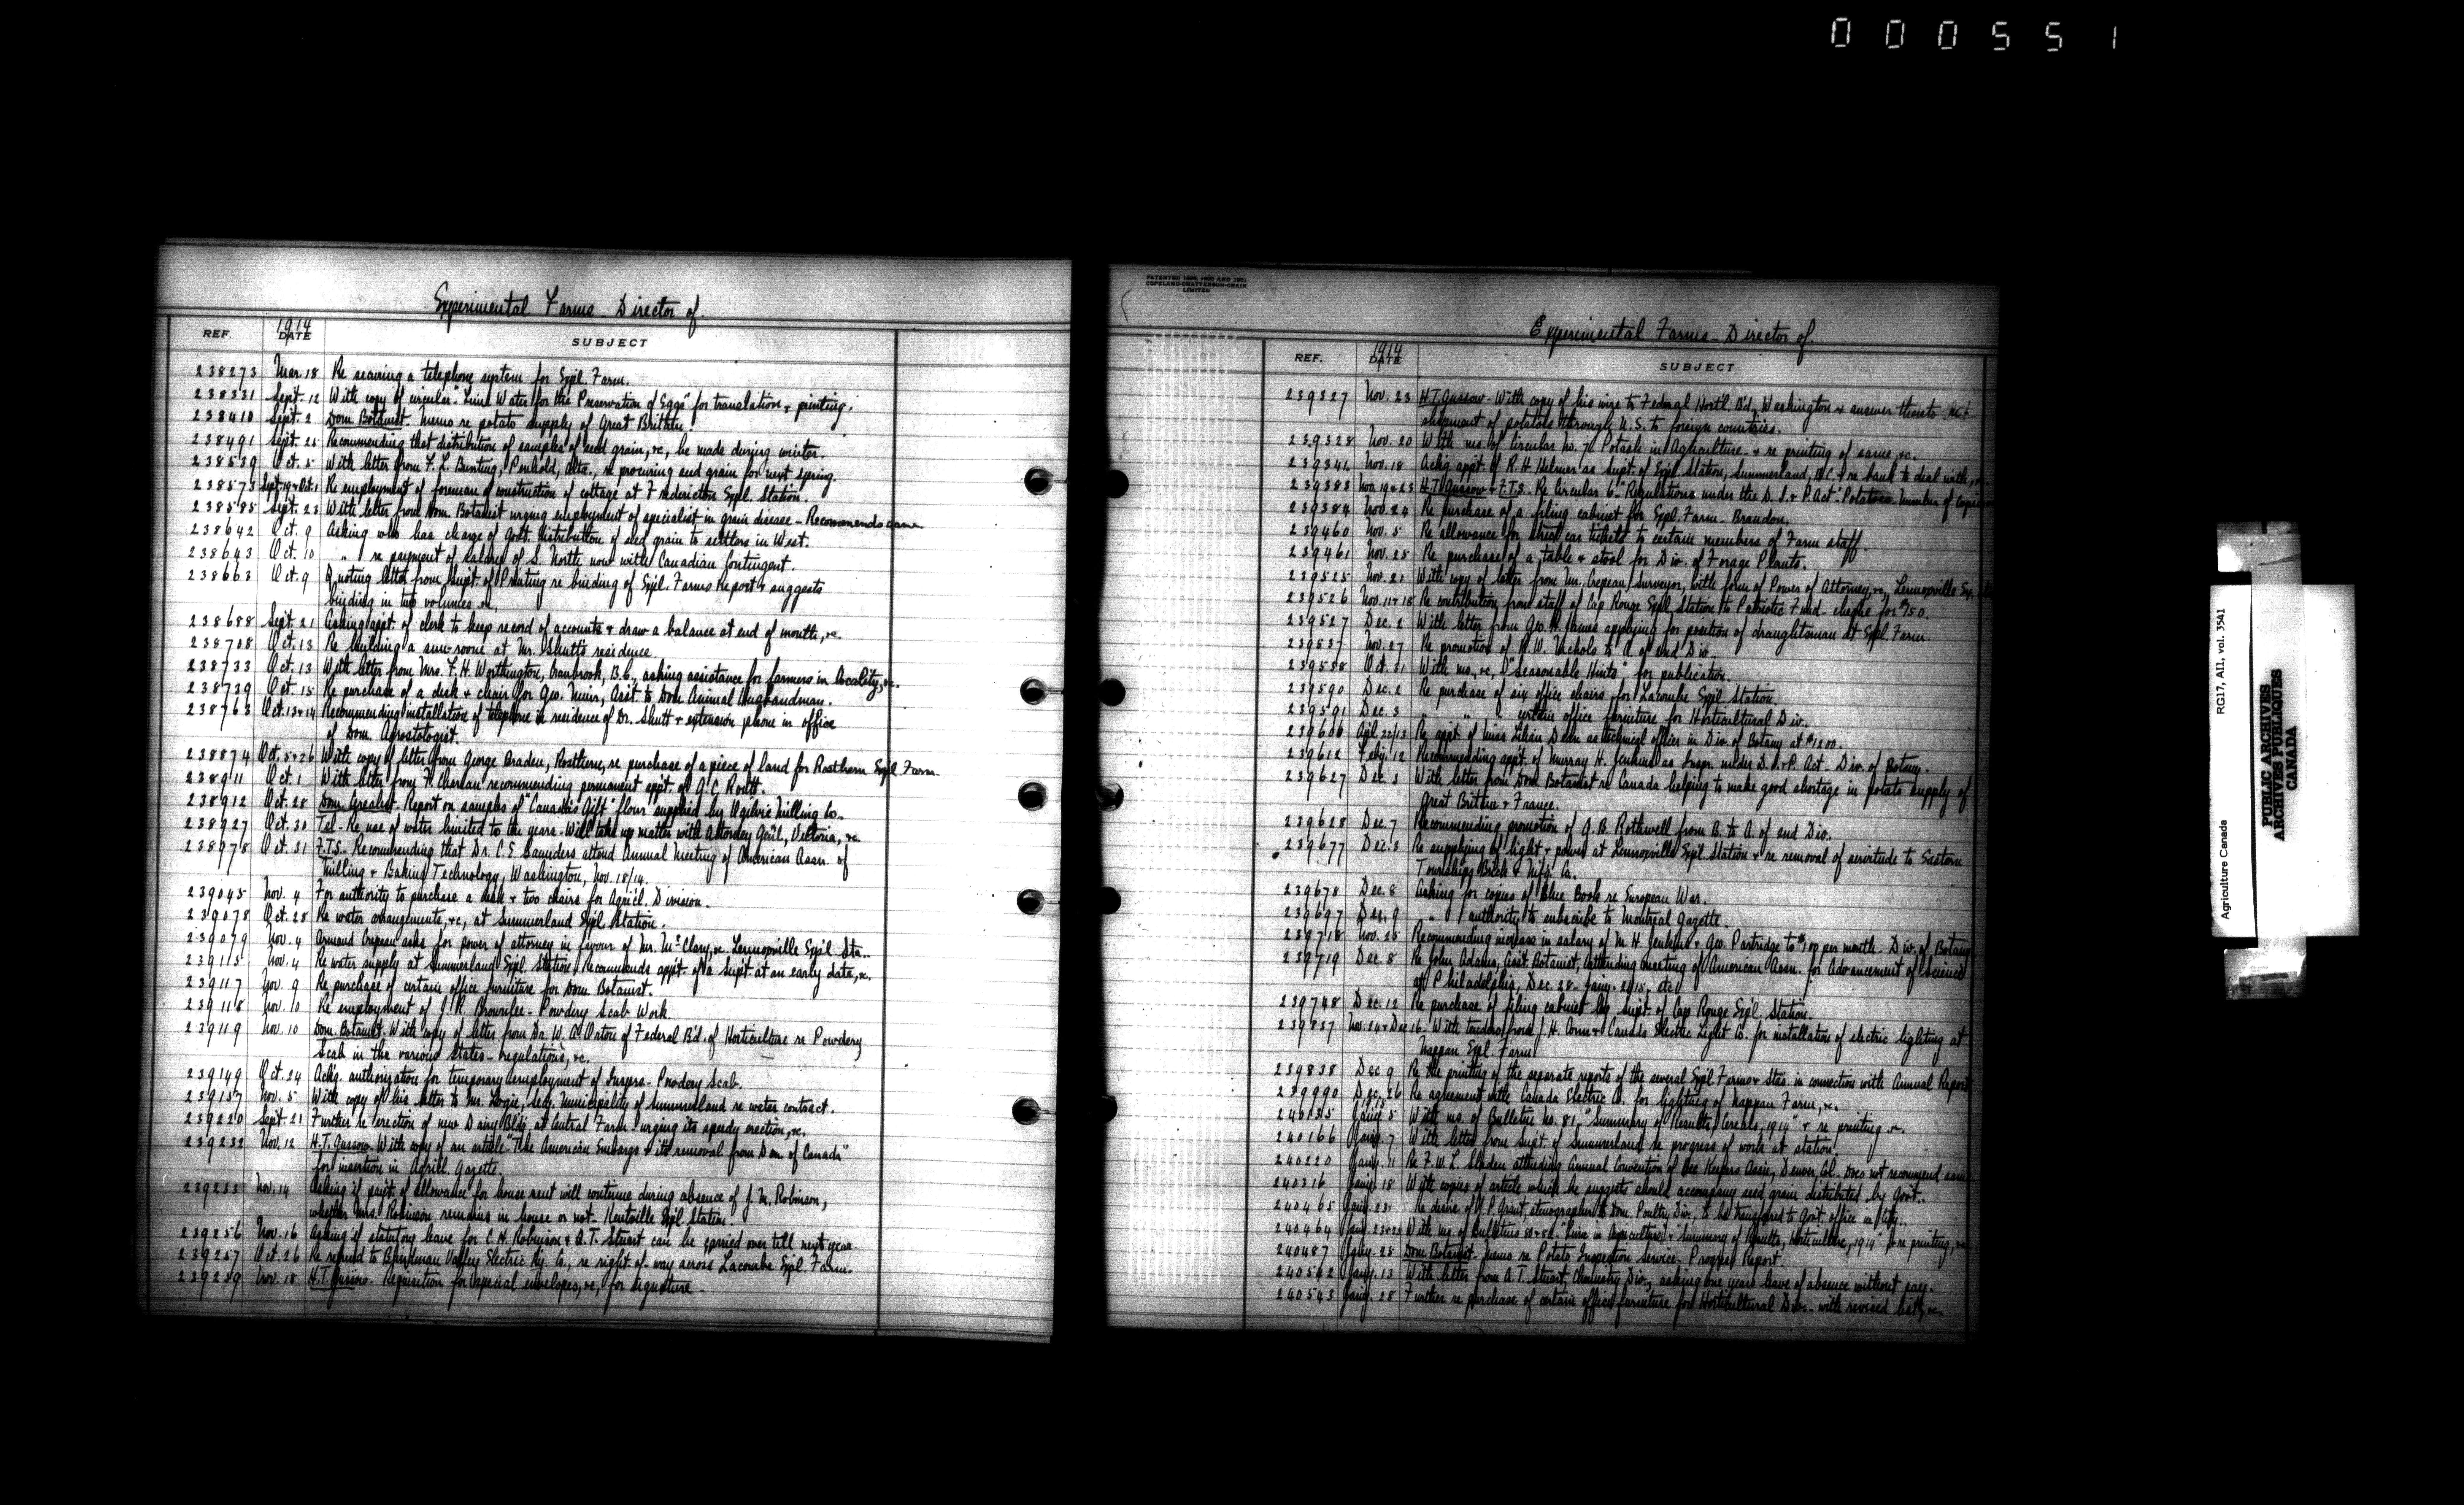 000551
Experimental Farms Director of.
REF. 1914 DATE SUBJECT
238273 Mar. 18 Re securing a telephone system for Expl. Farm.
238331 Sept. 12 With copy of circular "Lime Water for the Preservation of Eggs" for translation & printing.
238410 Sept. 2 Dom. Botanist. Memo re potato supply of Great Britain.
238491 Sept. 25 Recommending that distribution of samples of seed grain, &c, be made during winter.
238539 Oct. 5 With letter from F. L. Bunting, Penhold, Alta., re procuring seed grain for next spring.
238573 Sept. 19 & Oct. 1 Re employment of foreman of construction of cottage at Fredericton Expl. Station.
238585 Sept. 23 With letter from Dom. Botanist urging employment of specialist in grain disease - Recommends same
238642 Oct. 9 Asking who has charge of Govt. distribution of seed grain to settlers in West.
238643 Oct. 10 " re payment of salary of S. North now with Canadian Contingent.
238663 Oct. 9 Quoting letter from Supt. of Printing re binding of Expl. Farms Report & suggests
binding in two volumes &c.
238688 Sept. 21 Asking appt. of clerk to keep record of accounts & draw a balance at end of month, &c.
238708 Oct. 13 Re building a sun-room at Mr. Shutt's residence.
238733 Oct. 13 With letter from Mrs. F. H. Worthington, Cranbrook, B.C., asking assistance for farmers in locality, &c.
238739 Oct. 15 Re purchase of a desk & chair for Geo. Muir, Asst. to Dom. Animal Husbandman.
238763 Oct. 13 & 14 Recommending installation of telephone in residence of Dr. Shutt & extension phone in office
of Dom. Agrostologist.
238874 Oct. 5 & 26 With copy of letter from George Braden, Rosthern, re purchase of a piece of land for Rosthern Expl. Farm.
238911 Oct. 1 With letter from recommending permanent appt. of G. C. Routh.
238912 Oct. 28 Dom. Cerealist. Report on samples of "Canada's Gift" flour supplied by Ogilvie Milling Co.
238927 Oct. 30 Tel - Re use of water limited to the years - Will take up matter with Attorney Gen'l, Victoria, &c.
238978 Oct. 31 F.T.S. - Recommending that Dr. C. E. Saunders attend Annual Meeting of American Assn. of
Milling & Baking Technology, Washington, Nov. 18/14.
239045 Nov. 4 For authority to purchase a desk & two chairs for Agricl. Division.
239078 Oct. 28 Re water arrangements, &c, at Summerland Expl. Station.
239079 Nov. 4 Armand Crepeau asks for power of attorney in favour of Mr. McClary, re Lennoxville Exp'l Sta..
239115 Nov. 4 Re water supply at Summerland Expl. Station. Recommends appt. of a Supt. at an early date, &c.
239117 Nov. 9 Re purchase of certain office furniture for Dom. Botanist.
239118 Nov. 10 Re employment of J. R. Brownlee - Powdery Scab Work.
239119 Nov. 10 Dom. Botanist. With copy of letter from Dr. W. A. Orton of Federal Bd. of Horticulture re Powdery
Scab in the various States - regulations, &c.
239149 Oct. 24 Ackg. authorization for temporary employment of Insprs. - Powdery Scab.
239157 Nov. 5 With copy of his letter to Mr. Logie, Secy. Municipality of Summerland re water contract.
239220 Sept. 21 Further re erection of new Dairy Bldg. at Central Farm - urging its speedy erection, &c.
239232 Nov. 12 H. T. Gussow. With copy of an article "The American Embargo & its removal from Dom. of Canada"
for insertion in Agricl. Gazette.
239233 Nov. 14 Asking if paym't. of allowance for house rent will continue during absence of J. M. Robinson,
whether Mrs. Robinson remains in house or not. Kentville Expl. Station.
239256 Nov. 16 Asking if statutory leave for C. H. Robinson & A. T. Stuart can be carried over till next year.
239257 Oct. 26 Re refund to Blindman Valley Electric Ry. Co., re right-of-way across Lacombe Expl. Farm.
239259 Nov. 18 H. T. Gussow - Requisition for special envelopes, &c, for signature.
PATENTED 1898, 1900 AND 1901
COPELAND-CHATTERSON-CRAIN
LIMITED
Experimental Farms - Director of.
REF. 1914 DATE SUBJECT
239327 Nov. 23 H. T. Gussow - With copy of his wire to Federal Hort'l. B'd., Washington & answer thereto
shipment of potatoes through U.S. to foreign countries.
239328 Nov. 20 With ms. of circular No. 7 Potash in Agriculture - & re printing of same, &c.
239341 Nov. 18 Ackg. appt. of R. H. Helmer as Supt. of Expl. Station, Summerland, B.C. & re land to deal with,
239383 Nov. 19 & 23 H. T. Gussow & F.T.S. - Re Circular 6 "Regulations under the D. I. & P. Act." Potatoes - Number of copies
239384 Nov. 24 Re purchase of a filing cabinet for Expl. Farm - Brandon.
239460 Nov. 5 Re allowance for street car tickets to certain members of Farm staff.
239461 Nov. 25 Re purchase of a table & stool for Div. of Forage Plants.
239525 Nov. 21 With copy of letter from Mr. Crepeau, Surveyor, with form of Power of Attorney, re, Lennoxville Exp.
239526 Nov. 11 & 18 Re contribution from staff of Cap Rouge Expl. Station to Patriotic Fund - cheque for $750.
239527 Dec. 2 With letter from Geo. H. James applying for position of draughtsman at Expl. Farm.
239537 Nov. 27 Re promotion of R. W. Nichols to A. of 2nd Div.
239558 Oct. 31 With ms, &c, "Seasonable Hints" for publication.
239590 Dec. 2 Re purchase of six office chairs for Lacombe Expl. Station.
239591 Dec. 3 " " " certain office furniture for Horticultural Div.
239606 Apl. 22/13 Re appt. of Miss Lilian Dean as technical officer in Div. of Botany at $1200.
239612 Feby. 12 Recommending appt. of Murray H. Jenkins as Inspr. under D. I. & P. Act - Div. of Botany.
239627 Dec. 3 With letter from Dom. Botanist re Canada helping to make good shortage in potato supply of
Great Britain & France.
239628 Dec. 7 Recommending promotion of G. B. Rothwell from B. to A. of 2nd Div.
239677 Dec. 3 Re supplying of light & power at Lennoxville Expl. Station & re removal of servitude to Eastern
Townships Brick & Mfg. Co.
239678 Dec. 8 Asking for copies of Blue Book re European War.
239697 Dec. 9 " authority to subscribe to Montreal Gazette.
239718 Nov. 25 Recommending increase in salary of M. H. Jenkins & Geo. Partridge to $100 per month - Div. of Botany
239719 Dec. 8 Re John Adams, Asst. Botanist, attending meeting of American Assn. for Advancement of Science
at Philadelphia, Dec. 28 - Jany. 2/15, etc.
239748 Dec. 12 Re purchase of filing cabinet by Supt. of Cap Rouge Exp'l. Station.
239837 Nov. 24 & Dec. 16 - With tenders from J. H. Conn & Canada Electric Light Co. for installation of electric lighting at
Nappan Expl. Farm
239838 Dec. 9 Re the printing of the separate reports of the several Expl. Farms & Stas. in connection with Annual Report
239990 Dec. 26 Re agreement with Canada Electric Co. for lighting of Nappan Farm, &c.
1915
240135 Jany. 5 With ms. of Bulletin No. 81, "Summary of Results, Cereals, 1914" & re printing &c.
240166 Jany. 7 With letter from Supt. of Summerland re progress of work at station.
240220 Jany. 11 Re F. W. L. Sladen attending Annual Convention of Bee Keepers Assn., Denver, Col. Does not recommend same
240316 Jany. 18 With copies of article which he suggests should accompany seed grain distributed by Govt..
240465 Jany. 23 Re desire of P. Grant, stenographer to Dom. Poultry Div., to be transferred to Govt. office in City..
240464 Jany. 23 & 25 With ms. of Bulletins 80 & 82 "Lime in Agriculture" & "Summary of Results, Horticulture, 1914" & re printing, &c
240487 Jany. 25 Dom. Botanist - Memo re Potato Inspection Service - Progress Report.
240542 Jany. 13 With letter from A. T. Stuart, Chemistry Div., asking one years leave of absence without pay.
240543 Jany. 28 Further re purchase of certain office furniture for Horticultural Div. - with revised list, &c.
Agriculture Canada RG17, AII, vol. 3541
PUBLIC ARCHIVES
ARCHIVES PUBLIQUES
CANADA